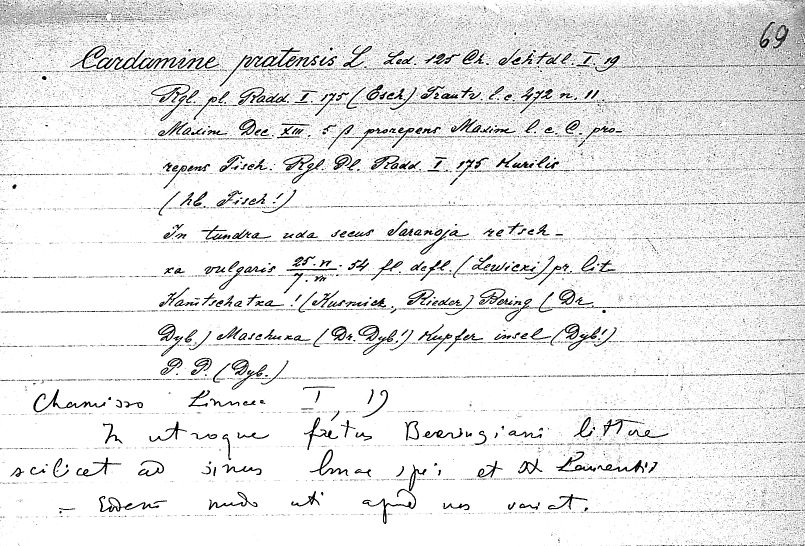 69
Cardamine pratensis L. Led. 125 Ch. Schtdl. I. 19
Rgl. pl. Radd. I. 175 (Esch) Trautv. l. c. 472 n. 11.
Maxim Dec. XIII. 5 β prorepens Maxim l. c. C. pro-
repens Fisch. Rgl. Pl. Radd. I. 175 Kurilis
(hb. Fisch!)
In tundra uda secus Saranoja retsch-
ka vulgaris 25.VI / 7.VII. 54 fl. defl. (Lewicki) pr. lit
Kamtschatka! (Kusmich., Rieder) Bering (Dr.
Dyb.) Maschuka (Dr. Dyb!) Kupfer insel (Dyb!)
P. P. (Dyb.)
Chamisso Linnaea I, 19
In utroque fretus Beeringiani littore
scilicet ad sinus bonae spei et St Laurentii
– Eodem modo uti apud nos variat.